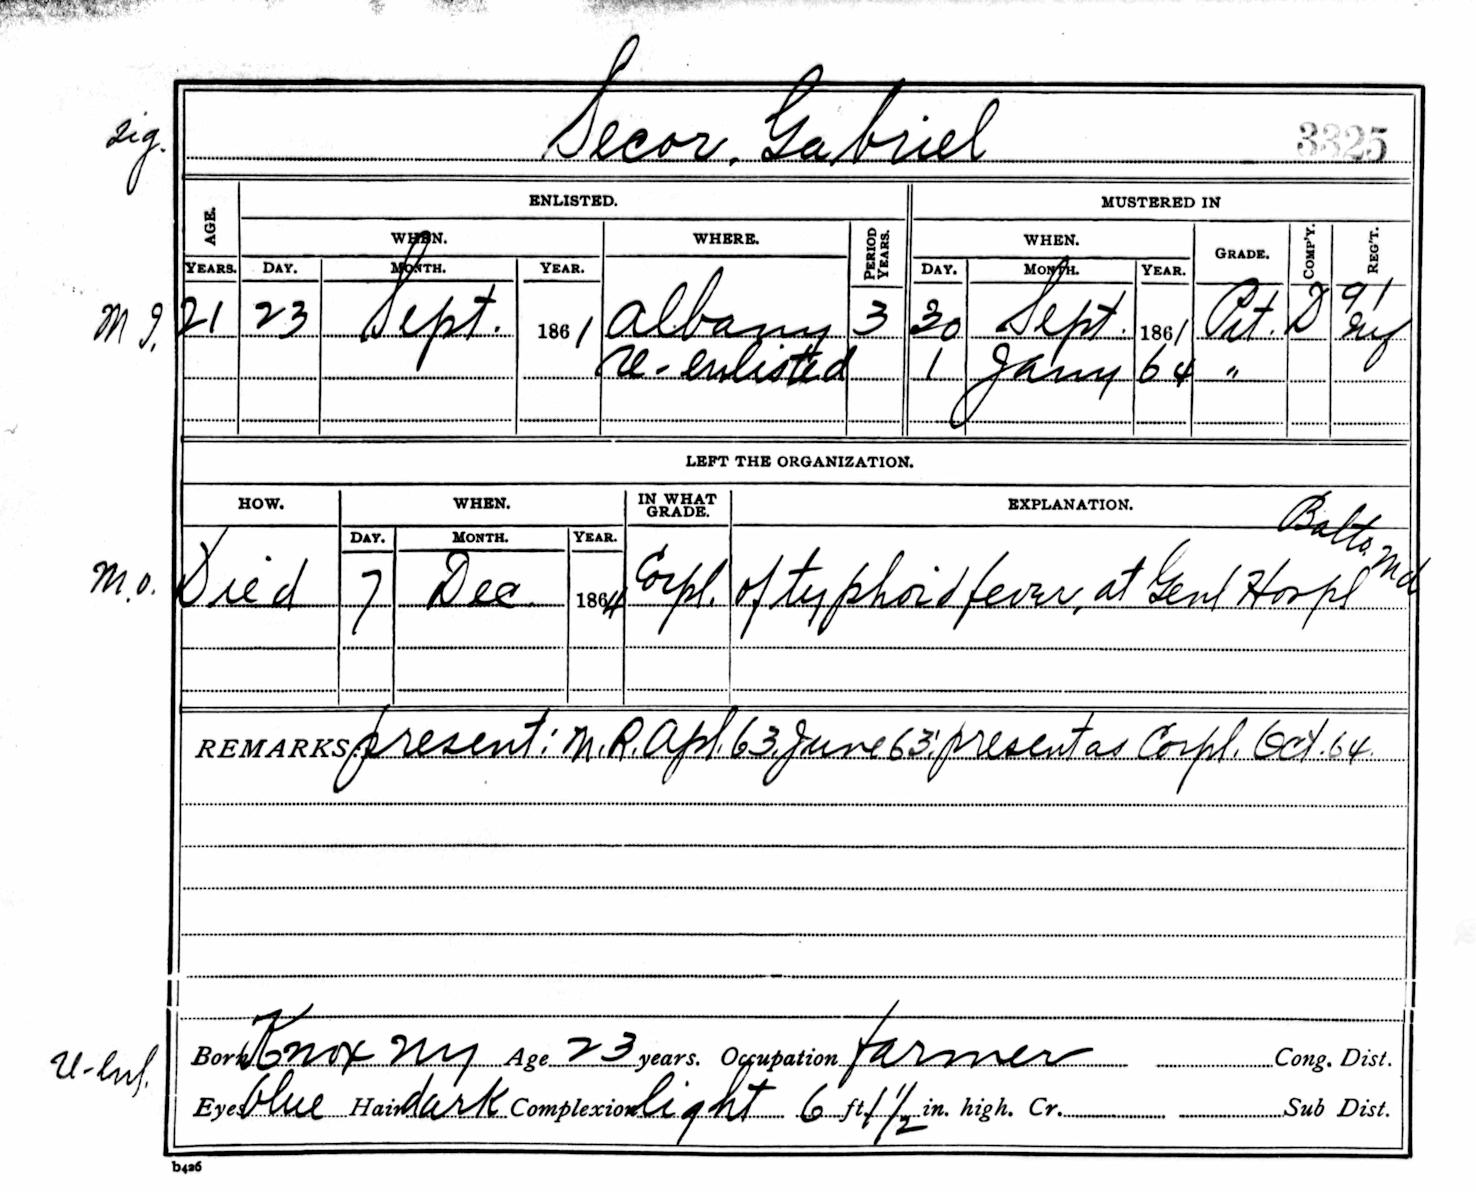 Secor, Gabriel 3325
sig.
ENLISTED. MUSTERED IN
AGE. WHEN. WHERE. PERIOD YEARS. WHEN. GRADE. COMP'Y. REG'T.
YEARS. DAY. MONTH. YEAR. DAY. MONTH. YEAR.
M I. 21 23 Sept. 1861 Albany 3 30 Sept. 1861 Pvt. D 91 NY
re-enlisted 1 Jany 64 "
LEFT THE ORGANIZATION.
HOW. WHEN. IN WHAT GRADE. EXPLANATION.
DAY. MONTH. YEAR.
M.O. Died 7 Dec. 1864 Corpl. of typhoid fever, at Genl Hospl Balto. Md
REMARKS: present: M.R. Apl. 63. June 63: present as Corpl. Oct. 64.
Born Knox NY Age 23 years. Occupation farmer Cong. Dist.
Eyes blue Hair dark Complexion light 6 ft. 1 1/2 in. high. Cr. Sub Dist.
b426